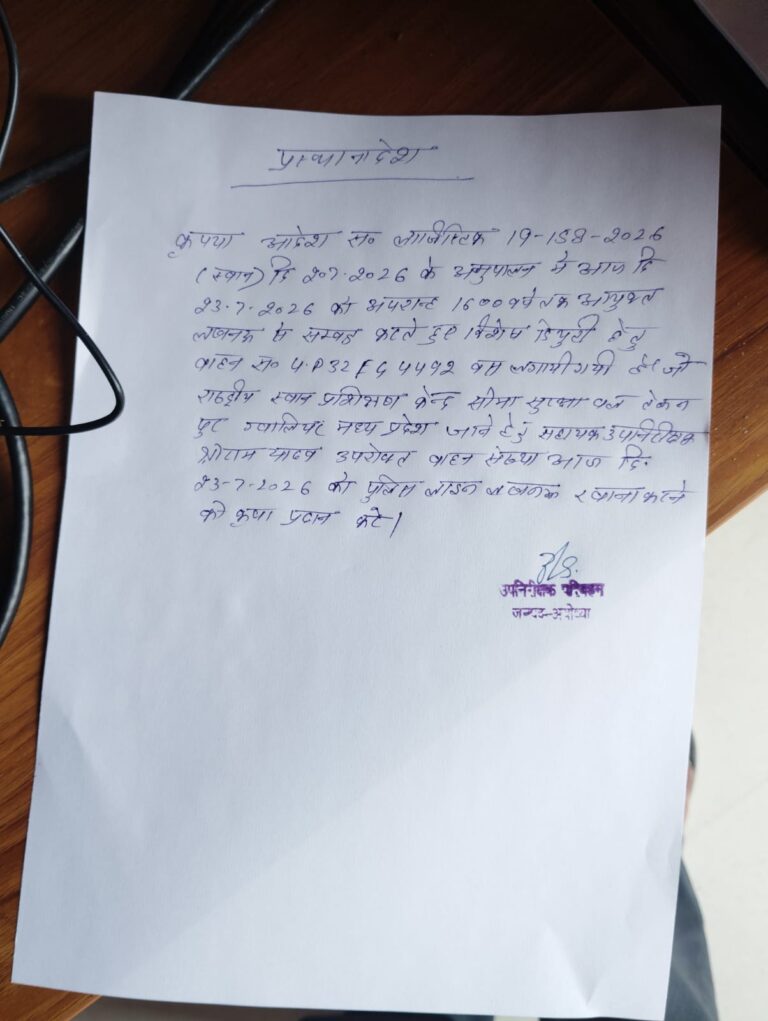 प्रस्थानादेश
कृपया आदेश स० लाजिस्टिक 19-158-2026
(स्वान) दि 20.7.2026 के अनुपालन मे आज दि
23.7.2026 को अपरान्ह 1600 बजे तक आयुक्त
लखनऊ से सम्पर्क करते हुए विशेष डियुटी हेतु
वाहन स० U.P32 FG 4492 बस लगायी गयी है जो
राष्ट्रीय स्वान प्रशिक्षण केन्द्र सीमा सुरक्षा बल टेकन
पुर ग्वालियर मध्य प्रदेश जाने हेतु सहायक उपनिरीक्षक
श्रीराम यादव उपरोक्त वाहन संख्या आज दि.
23-7-2026 को पुलिस लाइन लखनऊ रवाना करने
की कृपा प्रदान करे।
उपनिरीक्षक परिवहन
जनपद-अयोध्या